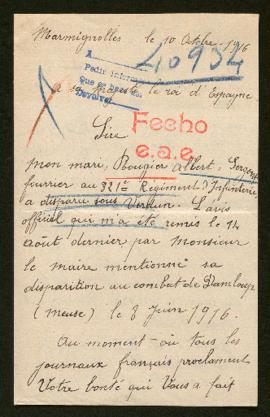 Marmignolles le 10 Octobre 1916
40934
A
Pedir
que se haga
Devolver
a sa Majesté le roi d'Espagne
Sire
Fecho
e.a.e.
Mon mari, Rougier Albert, Sergent
fourrier au 321e Régiment d'Infanterie
a disparu sous Verdun. L'avis
officiel qui m'a été remis le 14
août dernier par Monsieur
le maire mentionne sa
disparition au combat de Damloup
(Meuse) le 8 Juin 1916.
Au moment où tous les
journaux français proclament
Votre bonté qui Vous a fait